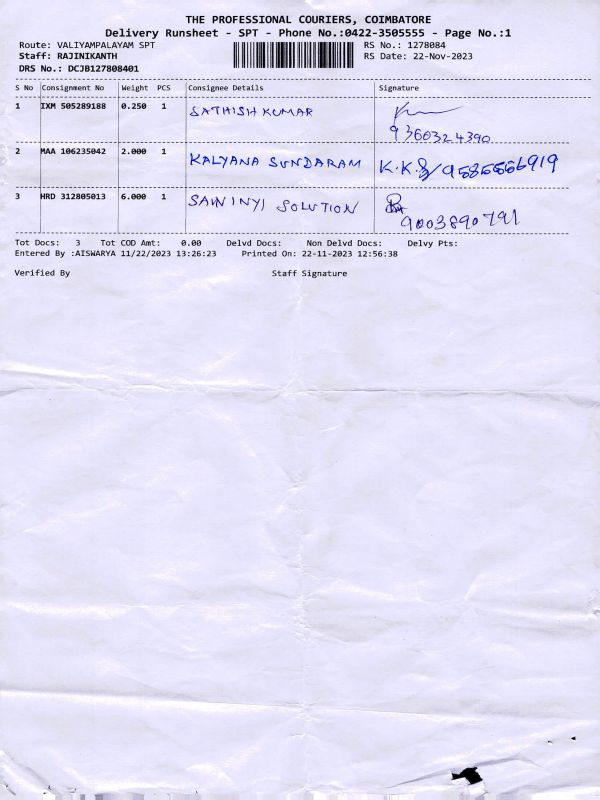 THE PROFESSIONAL COURIERS, COIMBATORE
Delivery Runsheet - SPT - Phone No.:0422-3505555 - Page No.:1
Route: VALIYAMPALAYAM SPT RS No.: 1278084
Staff: RAJINIKANTH RS Date: 22-Nov-2023
DRS No.: DCJB127808401
S No Consignment No Weight PCS Consignee Details Signature
1 IXM 505289188 0.250 1 SATHISH KUMAR
9360324390
2 MAA 106235042 2.000 1 KALYANA SUNDARAM K.K.
3 HRD 312805013 6.000 1 SOLUTION
9003890791
Tot Docs: 3 Tot COD Amt: 0.00 Delvd Docs: Non Delvd Docs: Delvy Pts:
Entered By :AISWARYA 11/22/2023 13:26:23 Printed On: 22-11-2023 12:56:38
Verified By Staff Signature